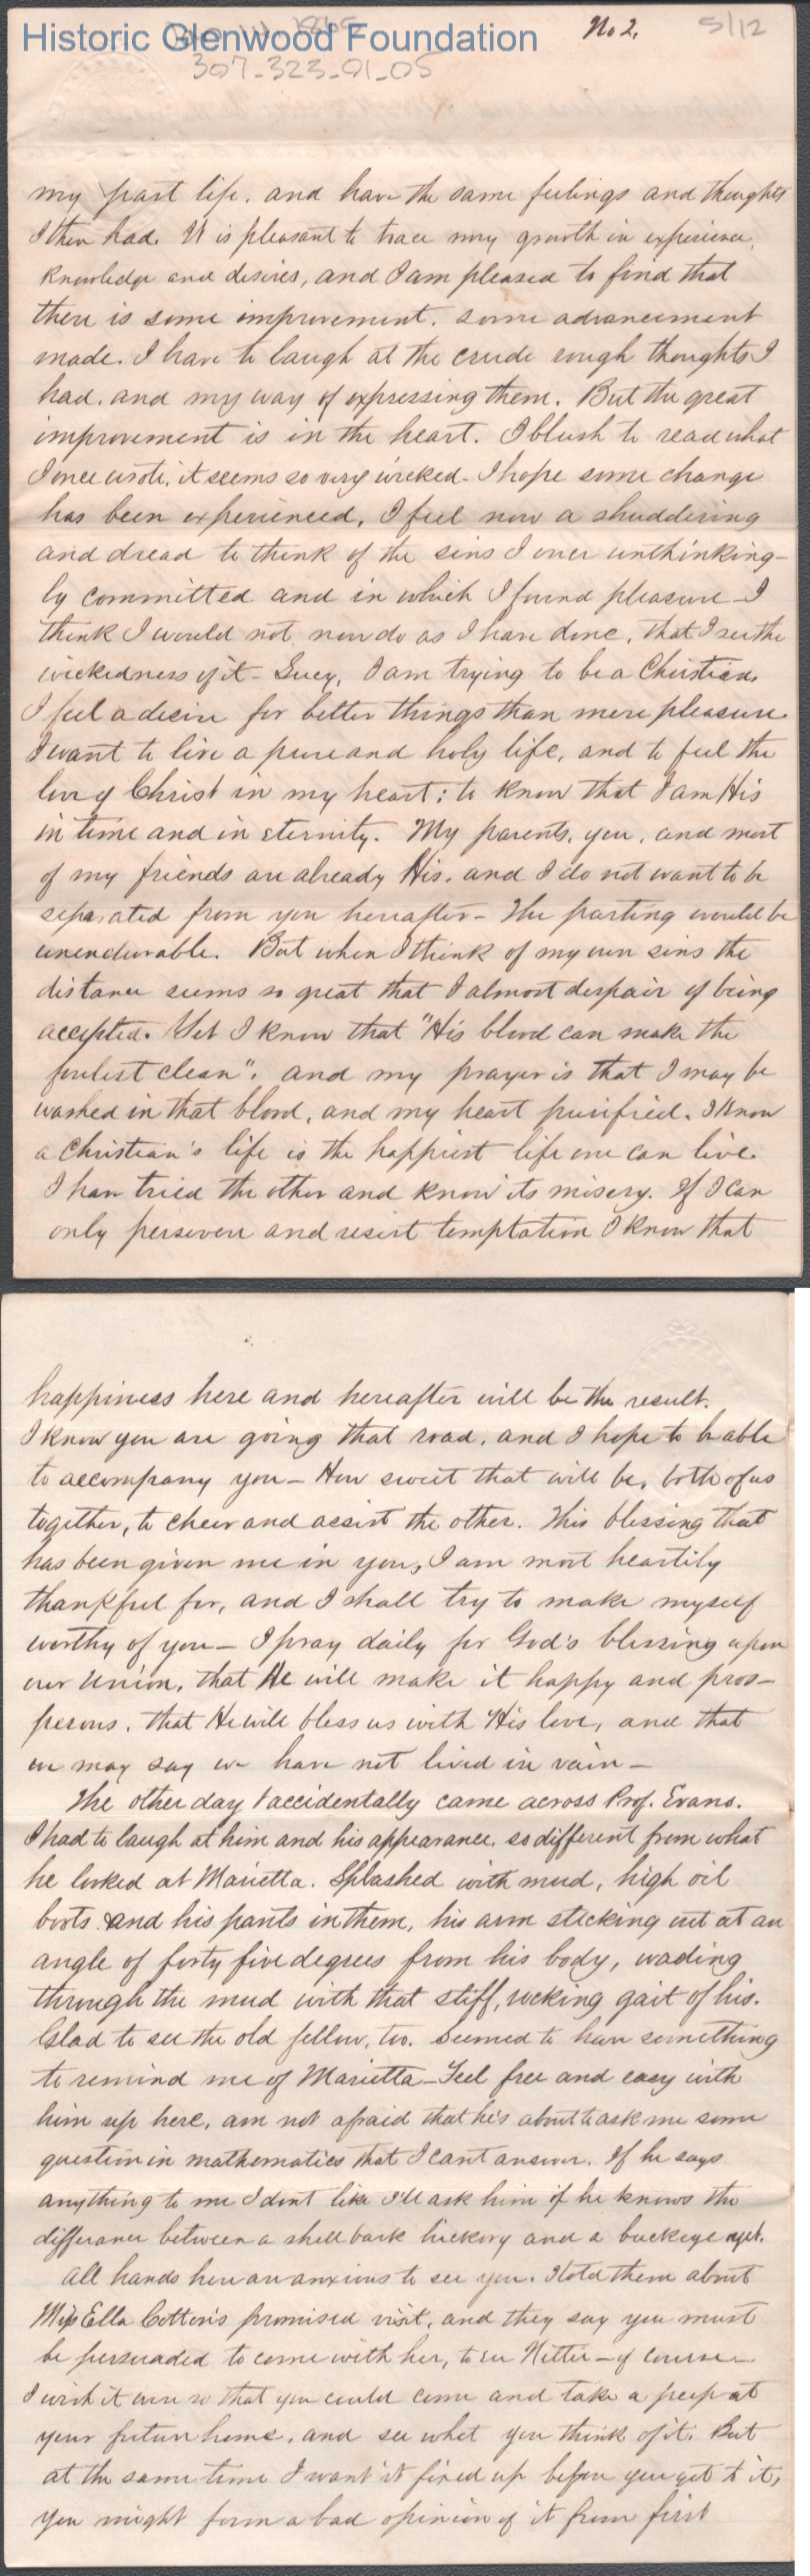 Historic Glenwood Foundation
No 2.
5/12
307-323-01-05
my past life. and have the same feelings and thoughts
I then had. It is pleasant to trace my growth in experience,
knowledge and desires, and I am pleased to find that
there is some improvement. some advancement
made. I have to laugh at the crude rough thoughts I
had. and my way of expressing them. But the great
improvement is in the heart. I blush to read what
I once wrote, it seems so very wicked - I hope some change
has been experienced, I feel now a shuddering
and dread to think of the sins I once unthinking-
ly committed and in which I found pleasure - I
think I would not now do as I have done, that I see the
wickedness of it - Lucy, I am trying to be a Christian.
I feel a desire for better things than mere pleasure.
I want to live a pure and holy life, and to feel the
love of Christ in my heart; to know that I am His
in time and in eternity. My parents, you, and most
of my friends are already His. and I do not want to be
separated from you hereafter - The parting would be
unendurable. But when I think of my own sins the
distance seems so great that I almost despair of being
accepted. Yet I know that "His blood can make the
foulest clean". and my prayer is that I may be
washed in that blood, and my heart purified. I know
a Christian's life is the happiest life one can live.
I have tried the other and know its misery. If I can
only persevere and resist temptation I know that
happiness here and hereafter will be the result.
I know you are going that road, and I hope to be able
to accompany you - How sweet that will be, both of us
together, to cheer and assist the other. This blessing that
has been given me in you, I am most heartily
thankful for, and I shall try to make myself
worthy of you - I pray daily for God's blessing upon
our Union, that He will make it happy and pros-
perous, that He will bless us with His love, and that
we may say we have not lived in vain -
The other day I accidentally came across Prof. Evans.
I had to laugh at him and his appearance, so different from what
he looked at Marietta. Splashed with mud, high oil
boots and his pants in them, his arm sticking out at an
angle of forty five degrees from his body, wading
through the mud with that stiff, rocking gait of his.
Glad to see the old fellow, too. Seemed to have something
to remind me of Marietta - Feel free and easy with
him up here, am not afraid that he's about to ask me some
question in mathematics that I cant answer. If he says
anything to me I dont like I'll ask him if he knows the
difference between a shell bark hickory and a buckeye yet.
All hands here are anxious to see you. I told them about
Miss Ella Cotton's promised visit, and they say you must
be persuaded to come with her, to see Hettie - of course
I wish it were so that you could come and take a peep at
your future home, and see what you think of it. But
at the same time I want it fixed up before you get to it,
you might form a bad opinion of it from first